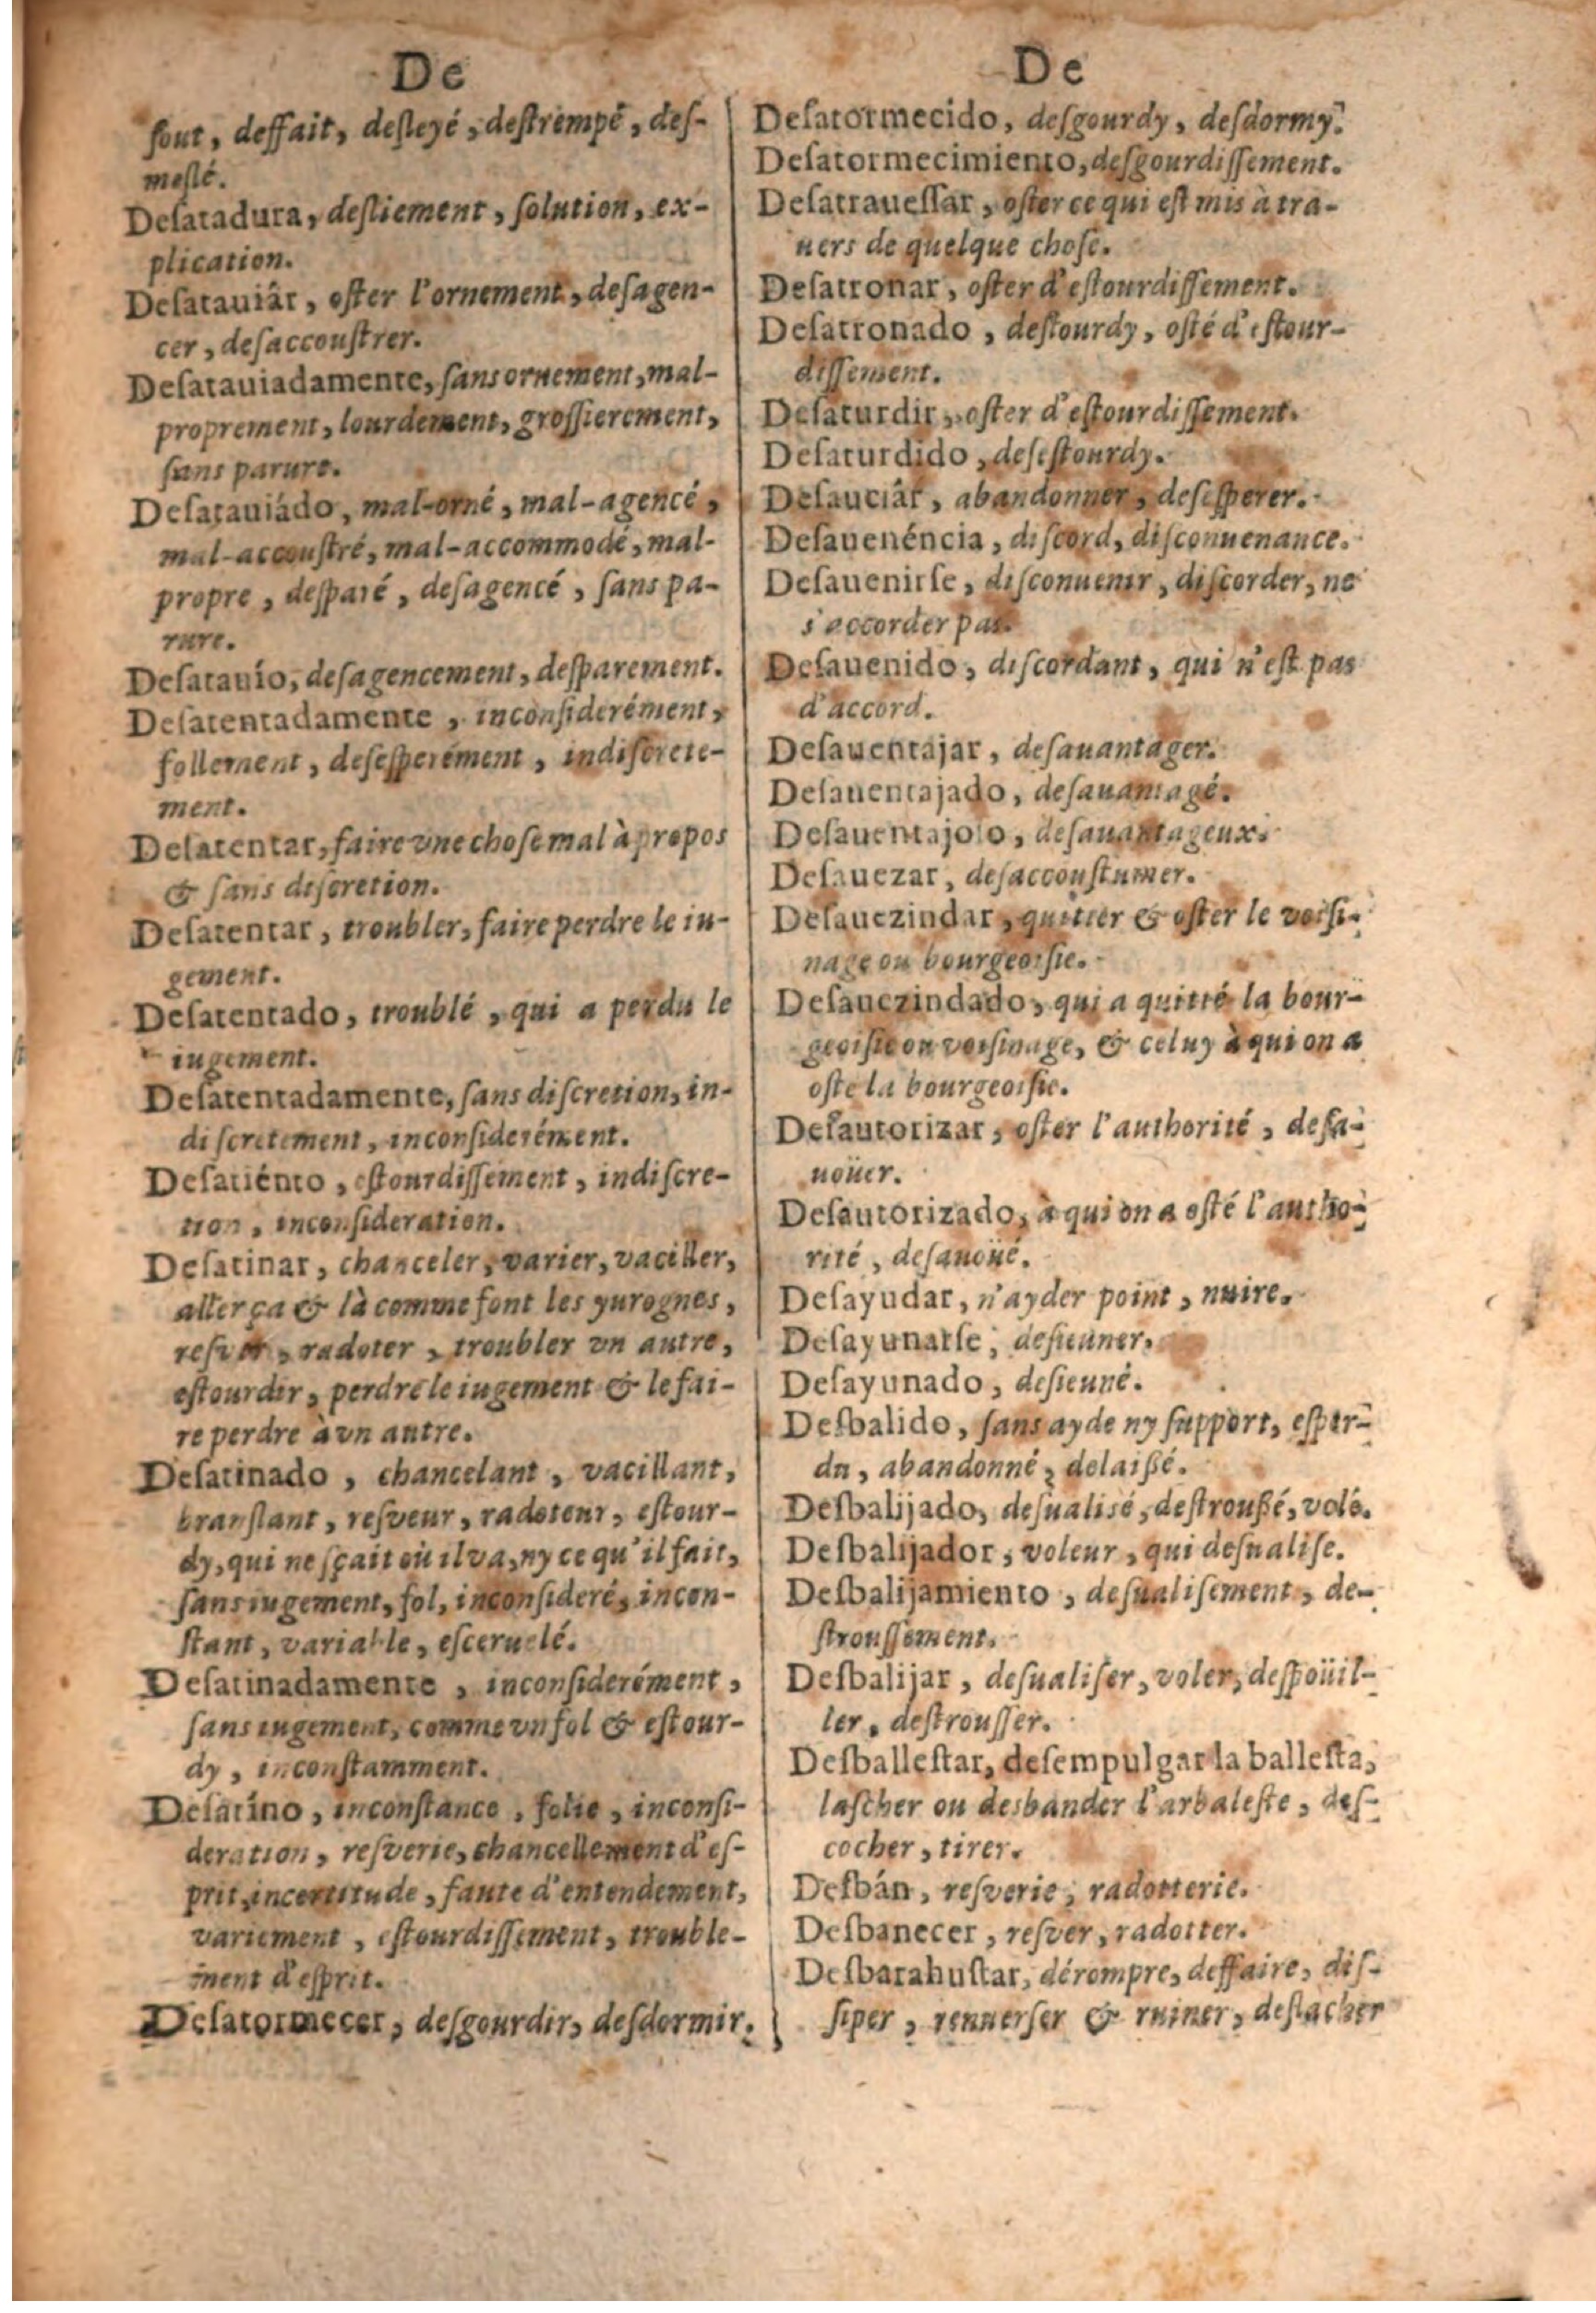 De
ſout, deffait, deſleyé, deſtrempé, deſ-
meſlé.
Deſatadura, deſliement, ſolution, ex-
plication.
Deſatauiâr, oſter l'ornement, deſagen-
cer, deſaccouſtrer.
Deſatauiadamente, ſans ornement, mal-
proprement, lourdement, groſſierement,
ſans parure.
Deſatauiádo, mal-orné, mal-agencé,
mal-accouſtré, mal-accommodé, mal-
propre, deſparé, deſagencé, ſans pa-
rure.
Deſatauío, deſagencement, deſparement.
Deſatentadamente, inconſiderément,
follement, deſeſperément, indiſcrete-
ment.
Deſatentar, faire vne choſe mal à propos
& ſans diſcretion.
Deſatentar, troubler, faire perdre le iu-
gement.
Deſatentado, troublé, qui a perdu le
iugement.
Deſatentadamente, ſans diſcretion, in-
diſcretement, inconſiderément.
Deſatiénto, eſtourdiſſement, indiſcre-
tion, inconſideration.
Deſatinar, chanceler, varier, vaciller,
aller ça & là comme font les yurognes,
reſver, radoter, troubler vn autre,
eſtourdir, perdre le iugement & le fai-
re perdre à vn autre.
Deſatinado, chancelant, vacillant,
branſlant, reſveur, radoteur, eſtour-
dy, qui ne ſçait où il va, ny ce qu'il fait,
ſans iugement, fol, inconſideré, incon-
ſtant, variable, eſceruelé.
Deſatinadamente, inconſiderément,
ſans iugement, comme vn fol & eſtour-
dy, inconſtamment.
Deſatíno, inconſtance, folie, inconſi-
deration, reſverie, chancellement d'eſ-
prit, incertitude, faute d'entendement,
variement, eſtourdiſſement, trouble-
ment d'eſprit.
Deſatormecer, deſgourdir, deſdormir.
De
Deſatormecido, deſgourdy, deſdormy.
Deſatormecimiento, deſgourdiſſement.
Deſatraueſſar, oſter ce qui eſt mis à tra-
uers de quelque choſe.
Deſatronar, oſter d'eſtourdiſſement.
Deſatronado, deſtourdy, oſté d'eſtour-
diſſement.
Deſaturdir, oſter d'eſtourdiſſement.
Deſaturdido, deſeſtourdy.
Deſauciâr, abandonner, deſeſperer.
Deſauenéncia, diſcord, diſconuenance.
Deſauenirſe, diſconuenir, diſcorder, ne
s'accorder pas.
Deſauenido, diſcordant, qui n'eſt pas
d'accord.
Deſauentajar, deſauantager.
Deſauentajado, deſauantagé.
Deſauentajoſo, deſauantageux.
Deſauezar, deſaccouſtumer.
Deſauezindar, quitter & oſter le voiſi-
nage ou bourgeoiſie.
Deſauezindado, qui a quitté la bour-
geoiſie ou voiſinage, & celuy à qui on a
oſte la bourgeoiſie.
Deſautorizar, oſter l'authorité, deſa-
uoüer.
Deſautorizado, à qui on a oſté l'autho-
rité, deſauoüé.
Deſayudar, n'ayder point, nuire.
Deſayunarſe, deſieuner.
Deſayunado, deſieuné.
Deſbalido, ſans ayde ny ſupport, eſper-
du, abandonné, delaißé.
Deſbalijado, deſualisé, deſtroußé, volé.
Deſbalijador, voleur, qui deſualiſe.
Deſbalijamiento, deſualiſement, de-
ſtrouſſement.
Deſbalijar, deſualiſer, voler, deſpoüil-
ler, deſtrouſſer.
Desballeſtar, deſempulgar la balleſta,
laſcher ou desbander l'arbaleſte, deſ-
cocher, tirer.
Deſbán, reſverie, radotterie.
Desbanecer, reſver, radotter.
Deſbarahuſtar, dérompre, deffaire, diſ-
ſiper, renuerſer & ruiner, deſlacher